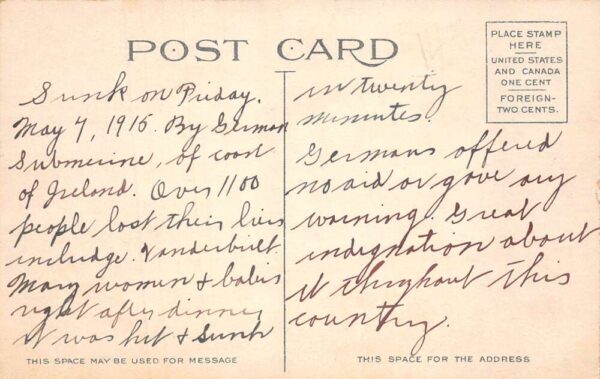 POST CARD
PLACE STAMP
HERE
UNITED STATES
AND CANADA
ONE CENT
FOREIGN-
TWO CENTS.
Sunk on Friday.
May 7, 1915. By German
Submerine, of coast
of Ireland. Over 1100
people lost their lives
includge. Vanderbuilt.
Many women & babies
right after dinner
it was hit & Sunk
in twenty
minutes.
Germans offered
no aid or gave any
warning. Great
indignation about
it thrughout this
country.
THIS SPACE MAY BE USED FOR MESSAGE
THIS SPACE FOR THE ADDRESS